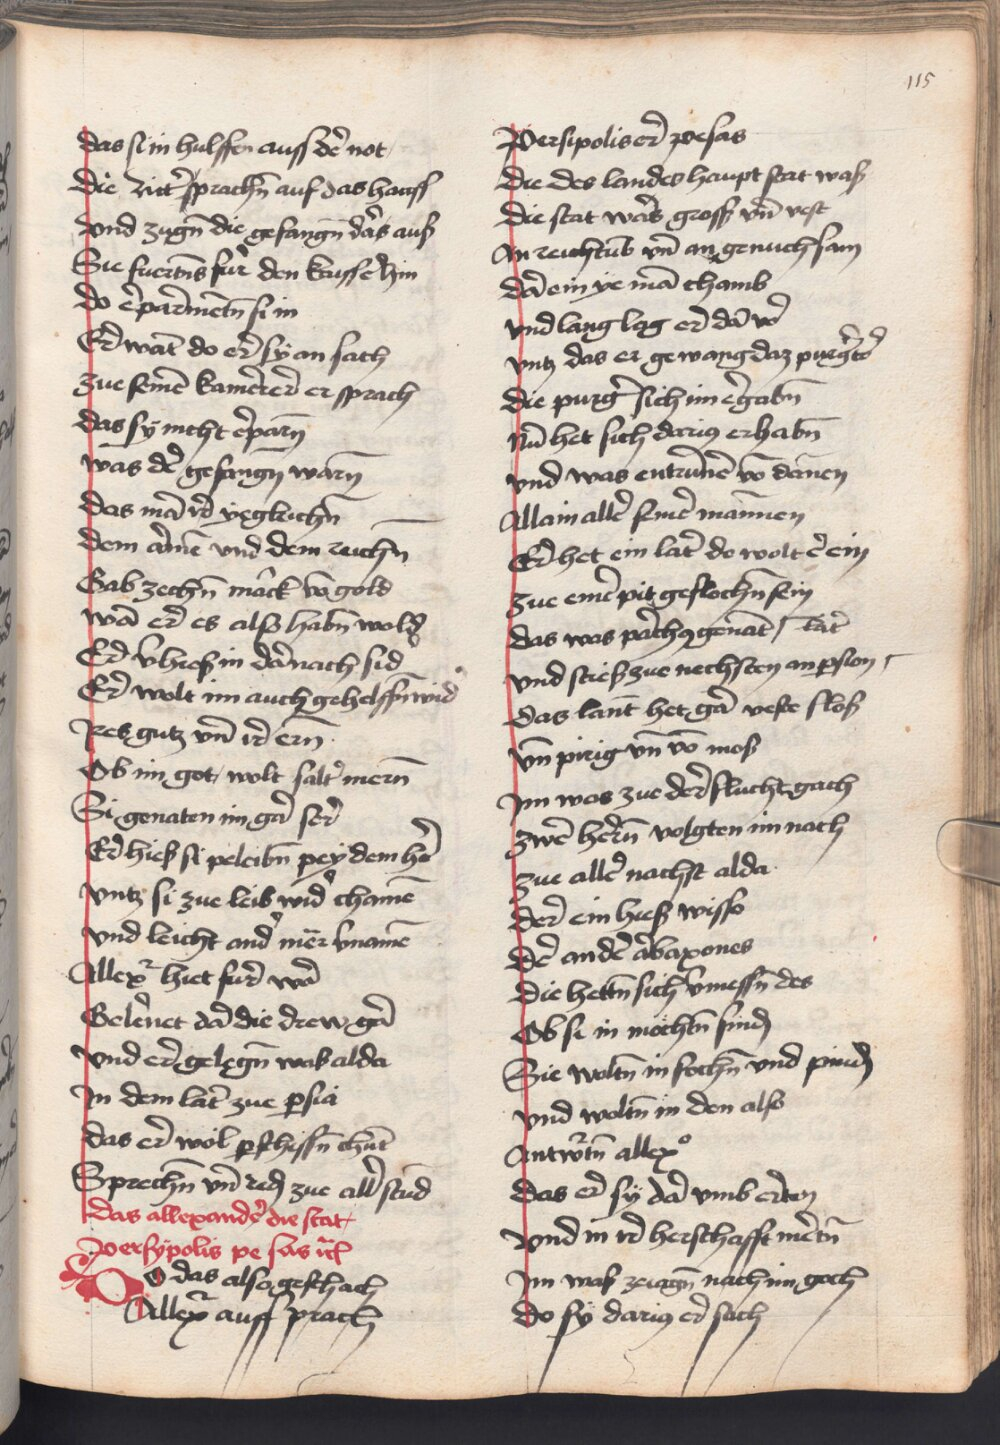 115
das si in hulffen auss der not
die ritter sprachn auf das hauss
vnd zugn die gefangn dars auß
Sie fuertns für den kaysser hin
do erparmetn si in
Er waint do er sy an sach
zue seinē kamerer er sprach
das sy nicht erparn
was der gefangn warn
das mā ir yeglichn
dem armē vnd dem reichn
Gab zechn marck vō gold
wā er es also habn wold
Er vhieß in darnach sid
Er wolt im auch gehelffn wid
Ires gutz vn̄ ir ern
Ob im got wolt salt mern
Si genaten im gar ser
Er hieß si peleibn pey dem her
vntz si zue leib wider chamē
vnd leicht ander mēr vnamē
Allexr hiet fur war
Gelernet dar die drew gar
vnd er gelegn was alda
In dem lāt zue persia
das er wol persischn chūt
Sprechn vn̄ red zue aller stund
das allexander die stat
persypolis pesas
Do das also geschach
Allexr auff prach
Persipolis er pesas
die des landes haupt stat waß
die stat was gross vn̄ vest
An reichtūb vn̄ an genuchsam
dar ein ye mā chamb
vnd lang lag er dar vor
vntz das er gewang daz purgtor
die purger sich im ergabn
Nū het sich darius erhabn
vnd was entrūnē vō dannen
Allain aller seiner mannen
Er het ein lāt do wolt er ein
zue einer pit geflochn sein
das was parthy genāt lāt
vnd stieß zue nechsten an persion
das lant het gar veste sloß
vn̄ pirig vn̄ vō moß
Im was zue der flucht gach
zwē hern volgten im nach
zue aller nachst alda
der ein hieß wisso
der ander arbaxones
die hettn sich vmessn des
Ob si in möchtn finden
Sie woltn in fochn vnd pinden
vnd woltn in den also
Antwrtn allexo
das er sy dar vmb erten
vnd in ir herschafft mertn
Im was zeiagn nach im goch
do sy darius ersach